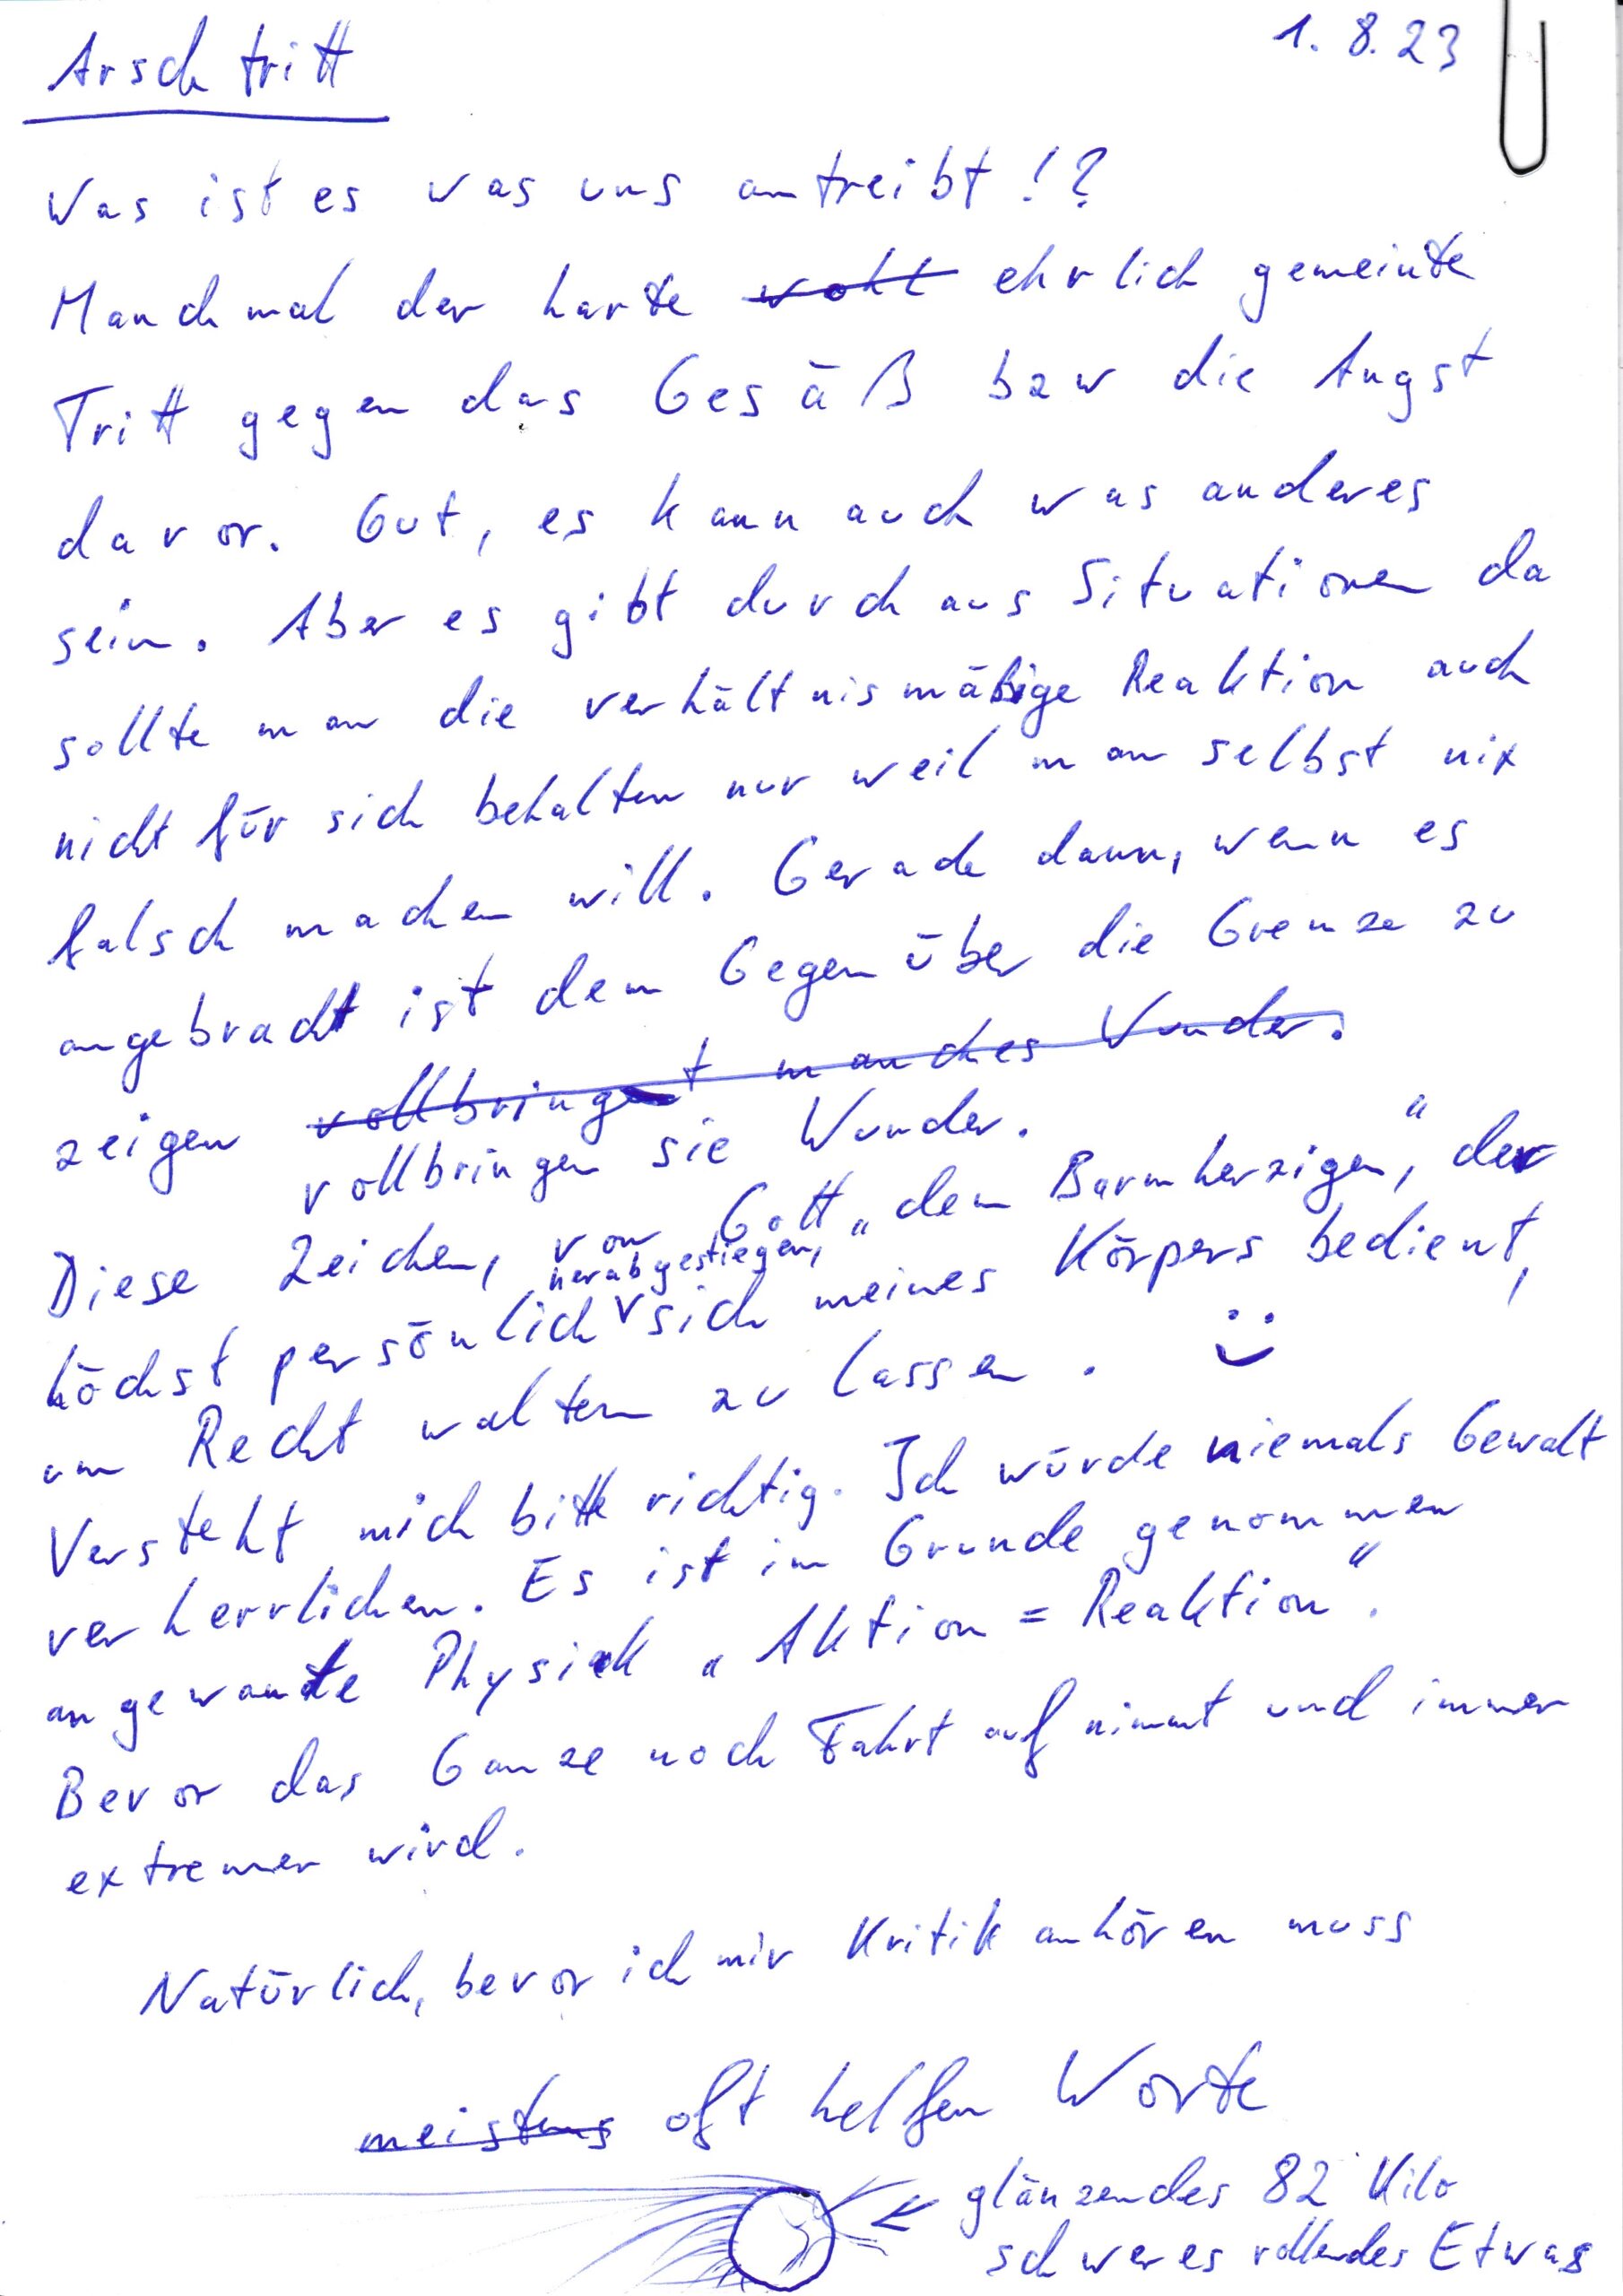 Arschtritt 1.8.23
Was ist es was uns antreibt!?
Manchmal der harte ~~wohl~~ ehrlich gemeinte
Tritt gegen das Gesäß bzw die Angst
davor. Gut, es kann auch was anderes
sein. Aber es gibt durchaus Situationen da
sollte man die verhältnismäßige Reaktion auch
nicht für sich behalten nur weil man selbst nix
falsch machen will. Gerade dann, wenn es
angebracht ist dem Gegenüber die Grenze zu
zeigen ~~vollbringt manches Wunder.~~
vollbringen sie Wunder.
Diese Zeichen, von Gott „dem Barmherzigen“, der
herabgestiegen,
höchst persönlich sich meines Körpers bedient,
um Recht walten zu lassen.
Versteht mich bitte richtig. Ich würde niemals Gewalt
verherrlichen. Es ist im Grunde genommen
angewante Physik „Aktion = Reaktion“.
Bevor das Ganze noch Fahrt auf nimmt und immer
extremer wird.
Natürlich, bevor ich mir Kritik anhören muss
~~meistens~~ oft helfen Worte
glänzendes 82 Kilo
schweres rollendes Etwas